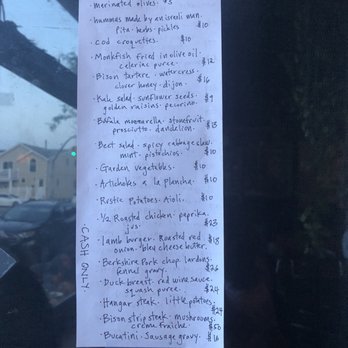 · merinated olives. $3
· hummas made by an isreali man.
pita · herbs · pickles $10
· cod croquettes. $10
· Monkfish fried in olive oil.
celeriac puree. $12
· Bison tartere · watercress.
clover honey. dijon. $16
· Kale salad. sunflower seeds.
golden raisins. pecorino. $9
· Bufala mozzarella. stonefruit.
prosciutto. dandelion. $13
· Beet salad. spicy cabbage slaw.
mint. pistachios. $10
· Garden vegetables. $10
· Artichokes a la plancha. $10
· Rustic Potatoes. Aioli. $10
· 1/2 Roasted chicken. paprika.
jus. $23
· lamb burger. Roasted red $18
onion. bleu cheese butter.
· Berkshire Pork chop. lardons.
fennel gravy. $26
· Duck breast. red wine sauce.
squash puree. $24
· Hangar steak. little potatoes.
$24
· Bison strip steak. mushrooms.
crème fraîche $50
· Bucatini. Sausage gravy. $16
CASH ONLY.